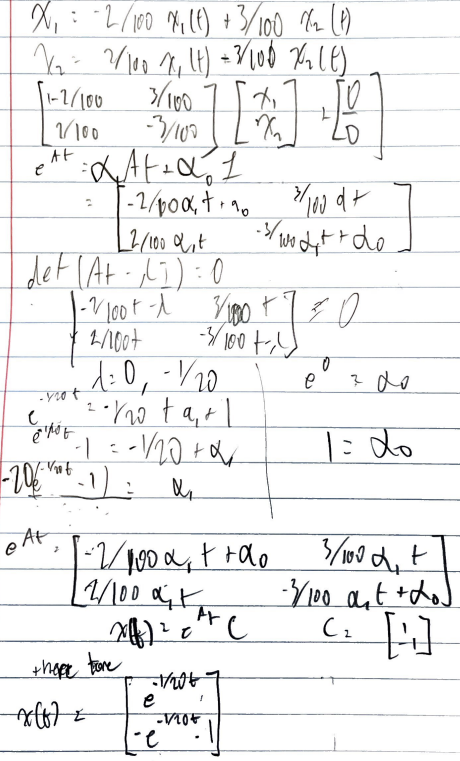 x₁ = -2/100 x₁(t) + 3/100 x₂(t)
x₂ = 2/100 x₁(t) + 3/100 x₂(t)
[1-2/100 3/100] [x₁] + [0]
[2/100 -3/100] [x₂] [0]
e^At = α₁At + α₀ 1
= [-2/100 α₁t + α₀ 3/100 αt]
[2/100 α₁t -3/100 α₁t + α₀]
det(At - λI) = 0
[-2/100t - λ 3/100 t] = 0
[2/100t -3/100 t - λ]
λ = 0, -1/20 e⁰ = α₀
e^-1/20t = -1/20 t α₁ + 1
e^-1/20t - 1 = -1/20 t α₁ 1 = α₀
-20(e^-1/20t - 1) = α₁
t
e^At = [-2/100 α₁t + α₀ 3/100 α₁t]
[2/100 α₁t -3/100 α₁t + α₀]
x(t) = e^At C C = [1]
[-1]
x(t) = [e^-1/20t]
[-e^-1/20t · 1]